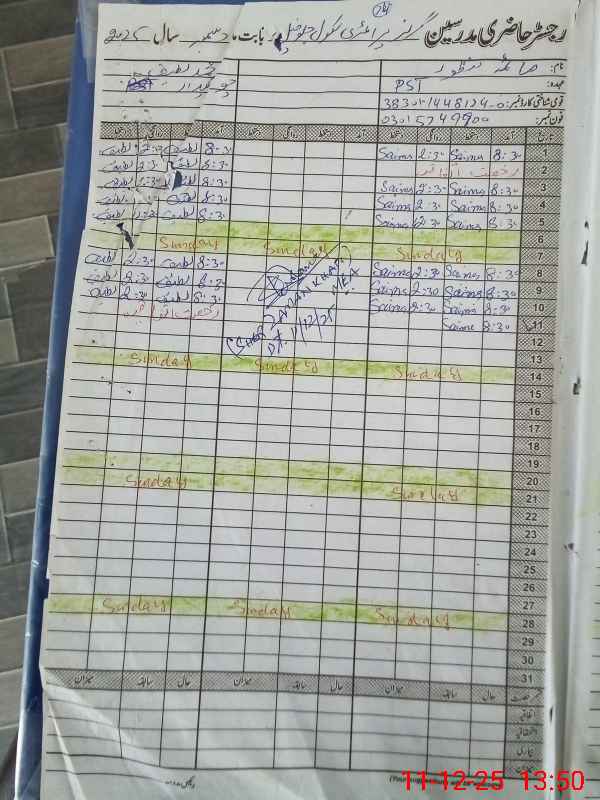 رجسٹر حاضری مدرسین گرلز پرائمری سکول بابت ماہ دسمبر سال 2025
نام: صائمہ منظور محمد لطیف
عہدہ: PST چوکیدار
قومی شناختی کارڈ نمبر: 38301-1448124-0
فون نمبر: 03015749900
تاریخ آمد دستخط روانگی دستخط آمد دستخط روانگی دستخط آمد دستخط روانگی دستخط
1 8:30 Saima 2:30 Saima 8:30 لطیف 2:30 لطیف
2 رخصت اتفاقیہ 8:30 لطیف 2:30 لطیف
3 8:30 Saima 2:30 Saima 8:30 لطیف 2:30 لطیف
4 8:30 Saima 2:30 Saima 8:30 لطیف لطیف
5 8:30 Saima Saima 8:30 لطیف لطیف
6
7 Sunday Sunday Sunday
8 8:30 Saima 2:30 Saima 8:30 لطیف 2:30 لطیف
9 8:30 Saima 2:30 Saima 8:30 لطیف 2:30 لطیف
10 8:30 Saima 2:30 Saima 8:30 لطیف 2:30 لطیف
11 8:30 Saima رخصت اتفاقیہ
KHAN
MEA
DT. 11/12/25
12
13
14 Sunday Sunday Sunday
15
16
17
18
19
20
21 Sunday Sunday
22
23
24
25
26
27
28 Sunday Sunday Sunday
29
30
31
قسم رخصت حال سابقہ میزان حال سابقہ میزان حال سابقہ میزان
اتفاقیہ
استحقاقیہ
بیماری
میزان
11-12-25 13:50